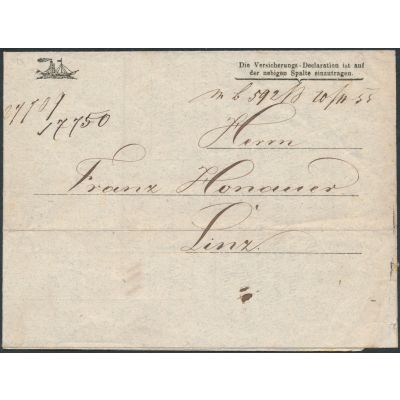 Die Versicherungs-Declaration ist auf
der nebigen Spalte einzutragen.
592 10/11 55
17750
Herrn
Franz Honauer
Linz.